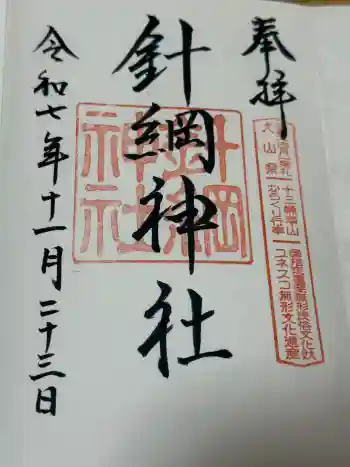 奉拝
針綱神社
針綱
神社
犬山祭
十三輌車山
からくり行事
国指定重要無形民俗文化財
ユネスコ無形文化遺産
令和七年十一月二十三日